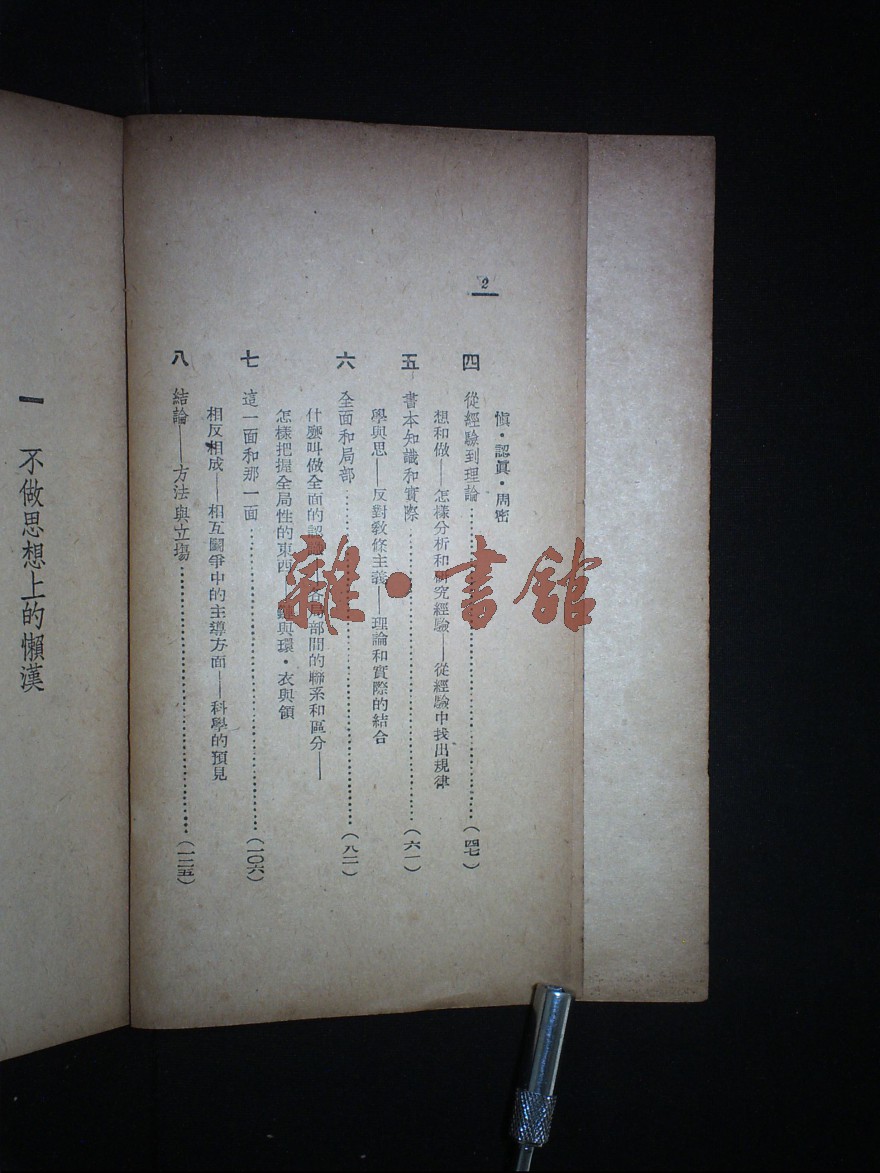 2
愼·認眞·周密
四 從經驗到理論……(四七)
想和做——怎樣分析和研究經驗——從經驗中找出規律
五 書本知識和實際……(六一)
學與思——反對敎條主義——理論和實際的結合
六 全面和局部……(八一)
什麽叫做全面的認識——各局部間的聯系和區分——
怎樣把握全局性的東西——鏈與環·衣與領
七 這一面和那一面……(一〇六)
相反相成——相互鬭爭中的主導方面——科學的預見
八 結論——方法與立塲……(一二五)
一 不做思想上的懶漢
雜·書館